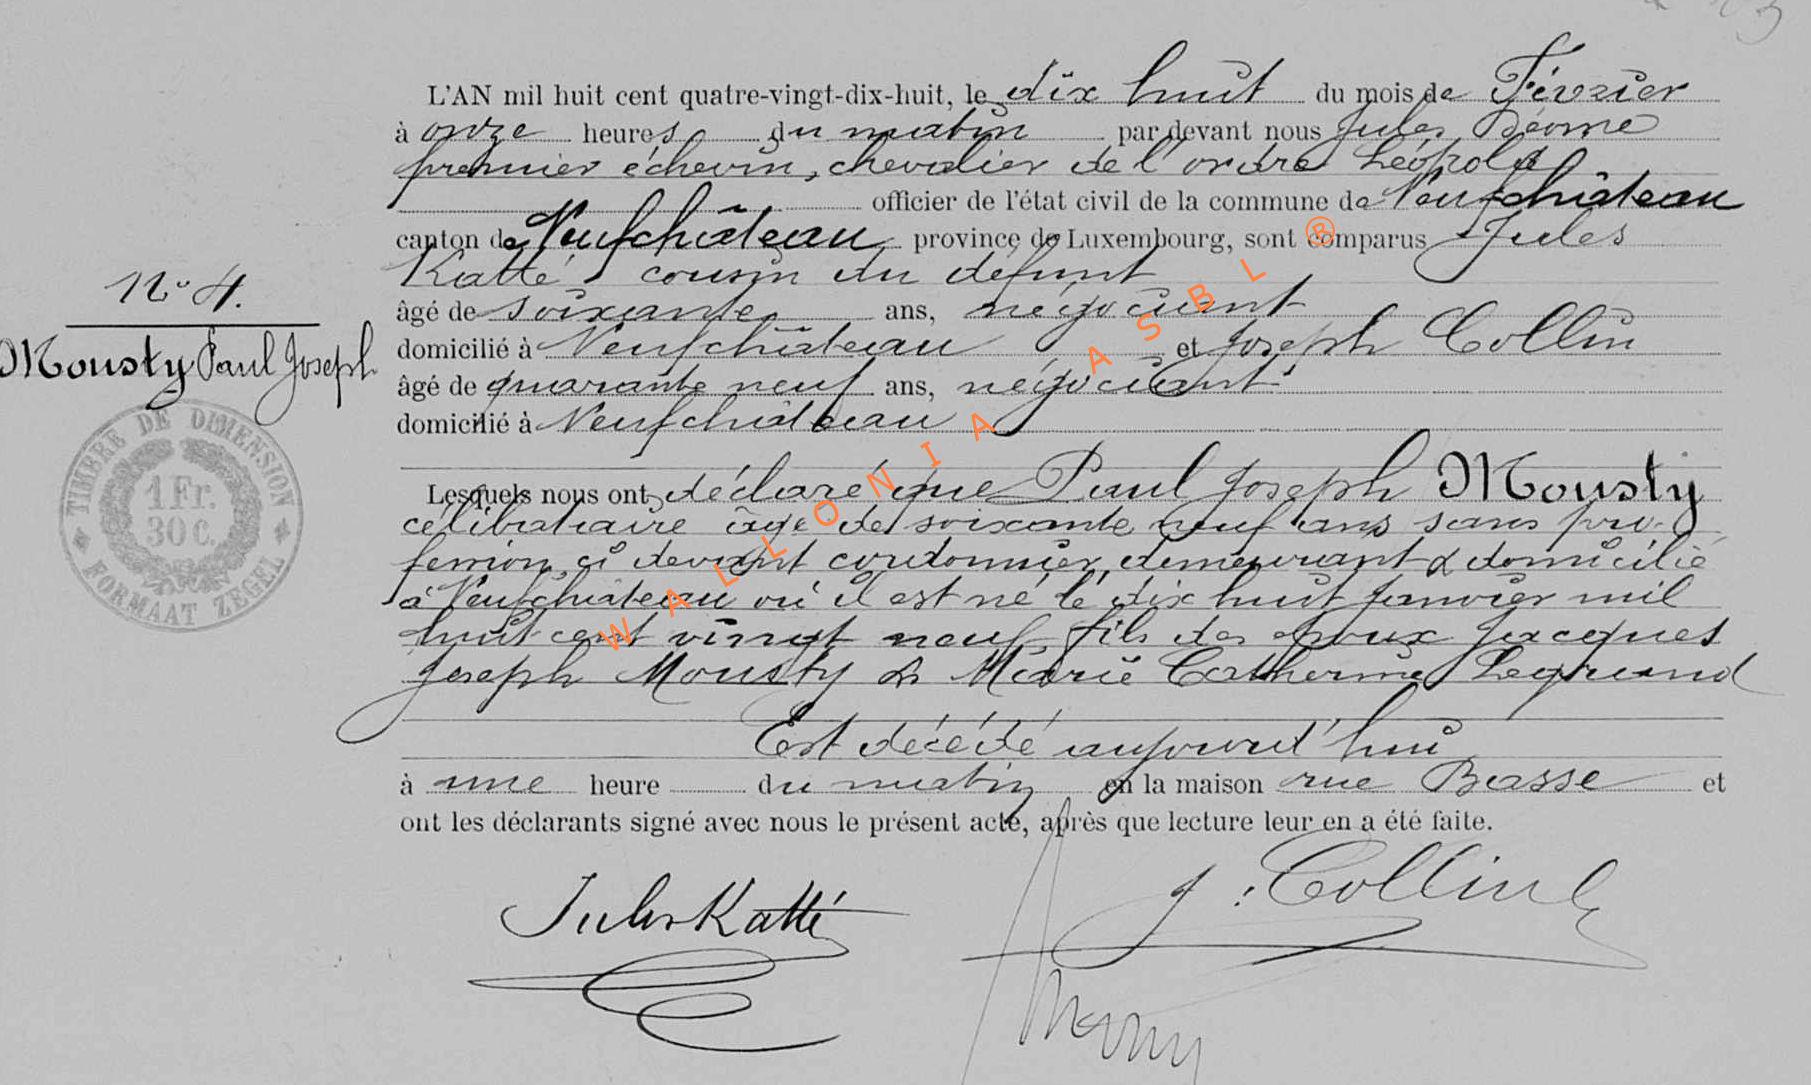 L'AN mil huit cent quatre-vingt-dix-huit, le dix huit du mois de Février
à onze heures du matin par devant nous Jules
premier échevin, chevalier de l'ordre Léopold
officier de l'état civil de la commune de Neufchâteau
canton de Neufchâteau province de Luxembourg, sont comparus Jules
Katté cousin du défunt
âgé de soixante ans, négociant
domicilié à Neufchâteau et Joseph Collin
âgé de quarante neuf ans, négociant
domicilié à Neufchateau
N° 4.
Mousty Paul Joseph
TIMBRE DE DIMENSION
1 Fr.
30 C.
FORMAAT ZEGEL
Lesquels nous ont déclaré que Paul Joseph Mousty
célibataire âgé de soixante neuf ans sans pro-
fession, ci devant cordonnier, demeurant & domicilié
à Neufchâteau où il est né le dix huit Janvier mil
huit cent vingt neuf fils des époux Jacques
Joseph Mousty & Marie Catherine Legrand
Est décédé aujourd'hui
à une heure du matin en la maison rue Basse et
ont les déclarants signé avec nous le présent acte, après que lecture leur en a été faite.
Jules Katté
J. Collin
WALLONIA ASBL ®